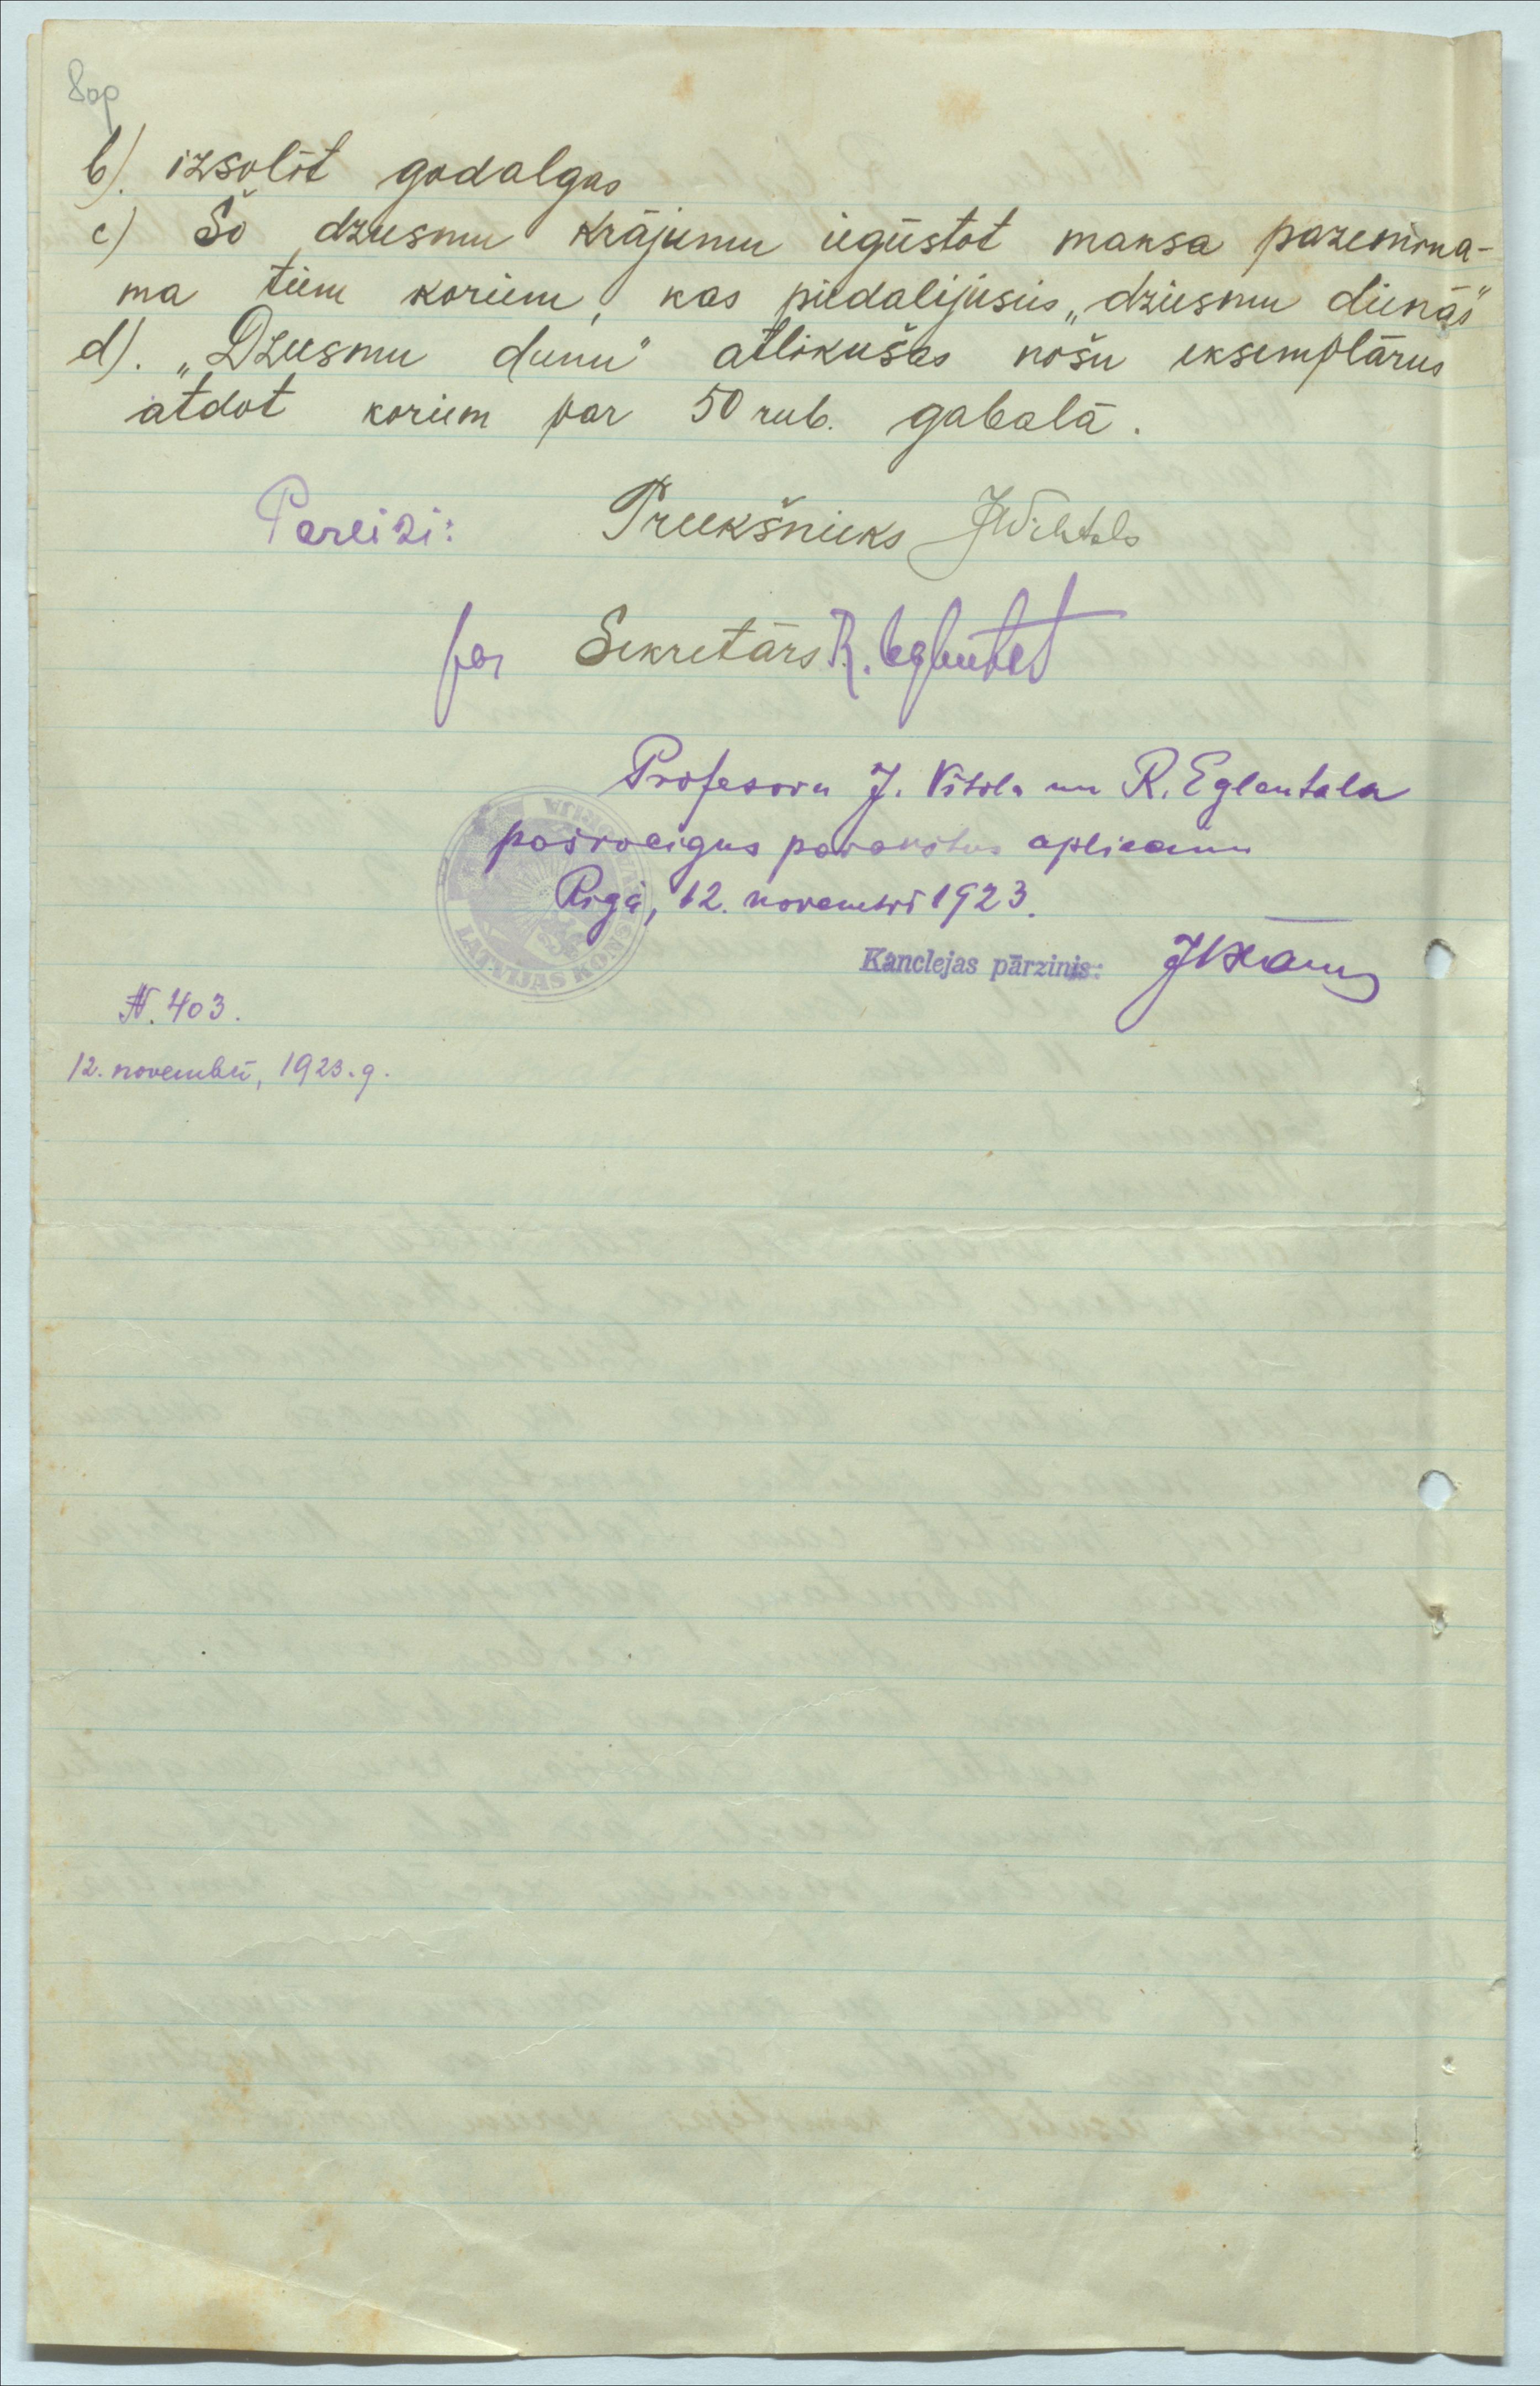 8op
b). izsolīt godalgas
c) Šo dziesmu krājumu iegūstot maksa pazemina-
ma tiem koriem, kas piedalijusies „dziesmu dienās"
d). „Dziesmu dienu" atlikušos nošu eksemplārus
atdot koriem par 50 rub. gabalā.
Pareizi: Priekšnieks JWihtols
par Sekretārs R.
Profesora J. Vītola un R. Eglentala
pašrocigus parakstus apliecinu
Rīgā, 12. novembrī 1923.
LATVIJAS KONS
Kanclejas pārzinis:
N. 403.
12. novembrī, 1923. g.